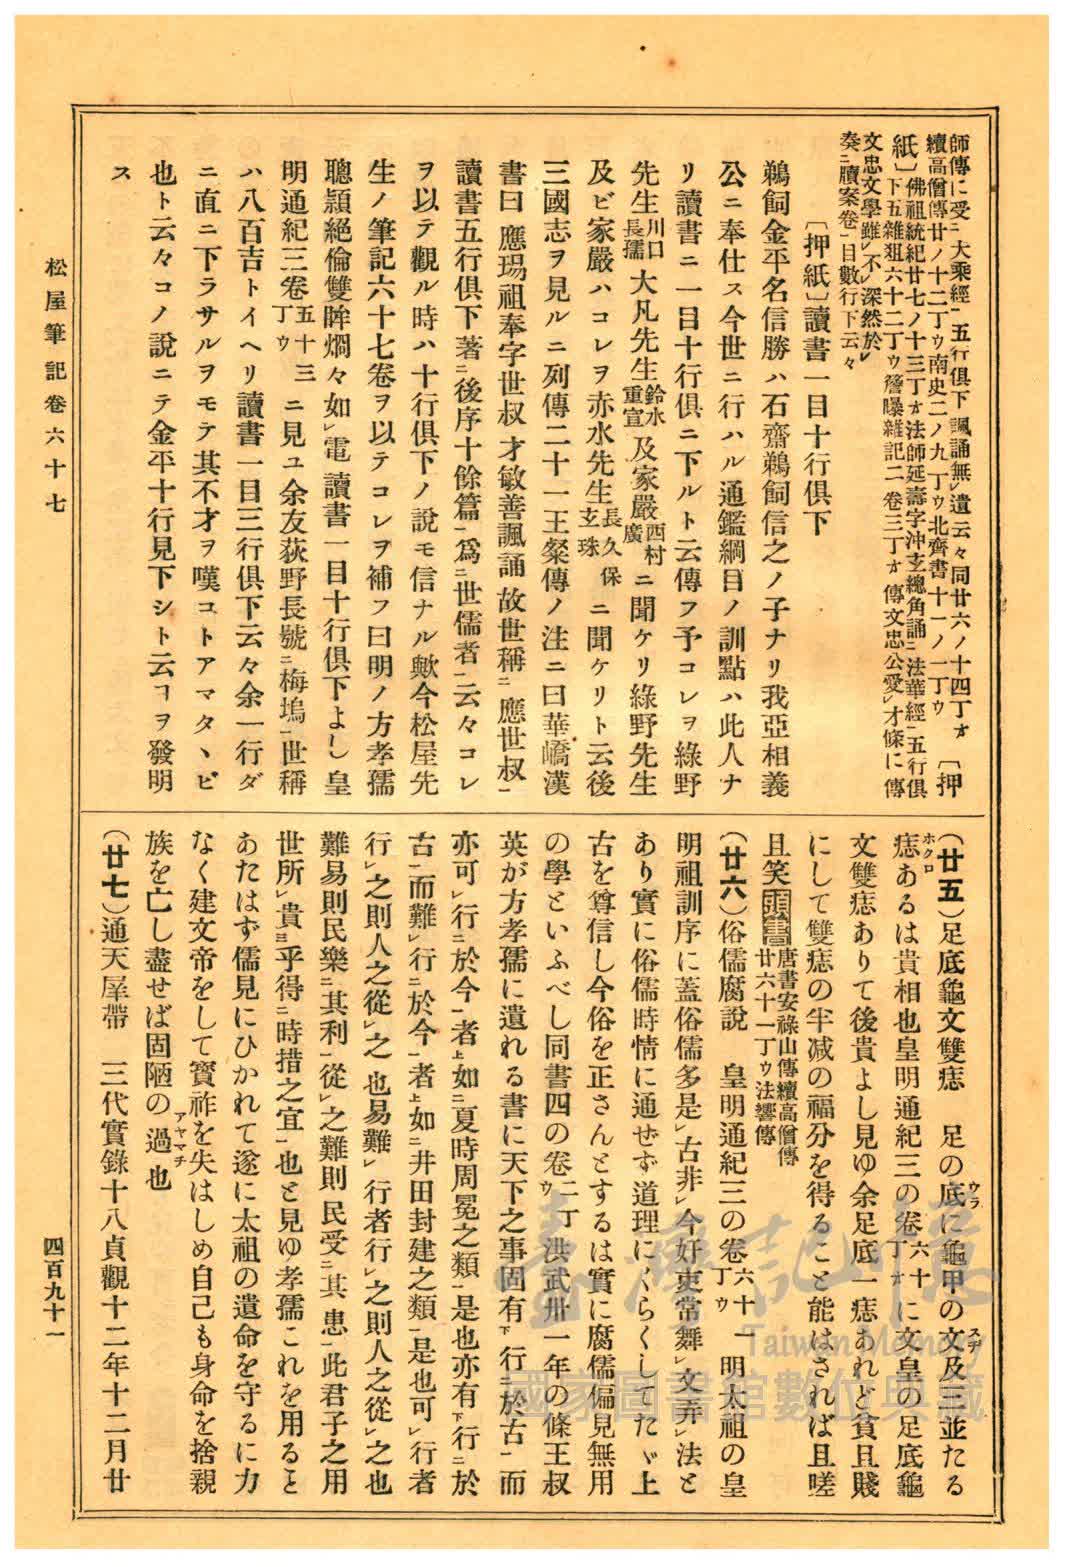 師傳に受㆓大乘經㆒五行俱下諷誦無㆑遺云々同廿六ノ十四丁オ
續高僧傳廿ノ十二丁ウ南史二ノ九丁ウ北齊書十一ノ一丁ウ〔押
紙〕佛祖統紀廿七ノ十三丁オ法師延壽字沖玄總角誦㆓法華經㆒五行俱
下五雜俎六十二丁ウ簷曝雜記二卷三丁オ傳文忠公愛㆑才條に傳
文忠文學雖㆑不㆓深然於㆑
奏㆓牘案卷㆒目數行下云々
〔押紙〕讀書一目十行俱下
鵜飼金平名信勝ハ石齋鵜飼信之ノ子ナリ我亞相義
公ニ奉仕ス今世ニ行ハル通鑑綱目ノ訓點ハ此人ナ
リ讀書ニ一目十行俱ニ下ルト云傳フ予コレヲ綠野
先生川口長孺大凡先生鈴水重宣及家嚴西村廣ニ聞ケリ綠野先生
及ビ家嚴ハコレヲ赤水先生長久保玄珠ニ聞ケリト云後
三國志ヲ見ルニ列傳二十一王粲傳ノ注ニ曰華嶠漢
書曰應瑒祖奉字世叔才敏善諷誦故世稱㆓應世叔㆒
讀書五行俱下著㆓後序十餘篇㆒爲㆓世儒者㆒云々コレ
ヲ以テ觀ル時ハ十行俱下ノ說モ信ナル歟今松屋先
生ノ筆記六十七卷ヲ以テコレヲ補フ曰明ノ方孝孺
聰穎絕倫雙眸烱々如㆑電讀書一目十行俱下よし皇
明通紀三卷五十三丁ウニ見ユ余友荻野長號㆓梅塢㆒世稱
ハ八百吉トイヘリ讀書一目三行俱下云々余一行ダ
ニ直ニ下ラサルヲモテ其不才ヲ嘆コトアマタヽビ
也ト云々コノ說ニテ金平十行見下シト云ヿヲ發明
ス
(廿五)足底龜文雙痣　足の底ウラに龜甲の文スヂ及二並たる
痣ホクロあるは貴相也皇明通紀三の卷六十丁オに文皇の足底龜
文雙痣ありて後貴よし見ゆ余足底一痣あれど貧且賤
にして雙痣の半減の福分を得ること能はされば且嗟
且笑頭書唐書安祿山傳續高僧傳廿六十一丁ウ法響傳
(廿六)俗儒腐說　皇明通紀三の卷六十一丁ウ明太祖の皇
明祖訓序に蓋俗儒多是㆑古非㆑今奸吏常舞㆑文弄㆑法と
あり實に俗儒時情に通せず道理にくらくしてたゞ上
古を尊信し今俗を正さんとするは實に腐儒偏見無用
の學といふべし同書四の卷二丁ウ洪武卅一年の條王叔
英が方孝孺に遺れる書に天下之事固有㆘行㆓於古㆒而
亦可㆑行㆓於今㆒者㆖如㆓夏時周冕之類㆒是也亦有㆘行㆓於
古㆒而難㆑行㆓於今㆒者㆖如㆓井田封建之類㆒是也可㆑行者
行㆑之則人之從㆑之也易難㆑行者行㆑之則人之從㆑之也
難易則民樂㆓其利㆒從㆑之難則民受㆓其患㆒此君子之用
世所㆑貴㆔乎得㆓時措之宜㆒也と見ゆ孝孺これを用ると
あたはず儒見にひかれて遂に太祖の遺命を守るに力
なく建文帝をして寳祚を失はしめ自己も身命を捨親
族を亡し盡せば固陋の過アヤマチ也
(廿七)通天犀帶　三代實錄十八貞觀十二年十二月廿
松屋筆記卷六十七
四百九十一
臺灣記憶
Taiwan Memory
國家圖書館數位典藏